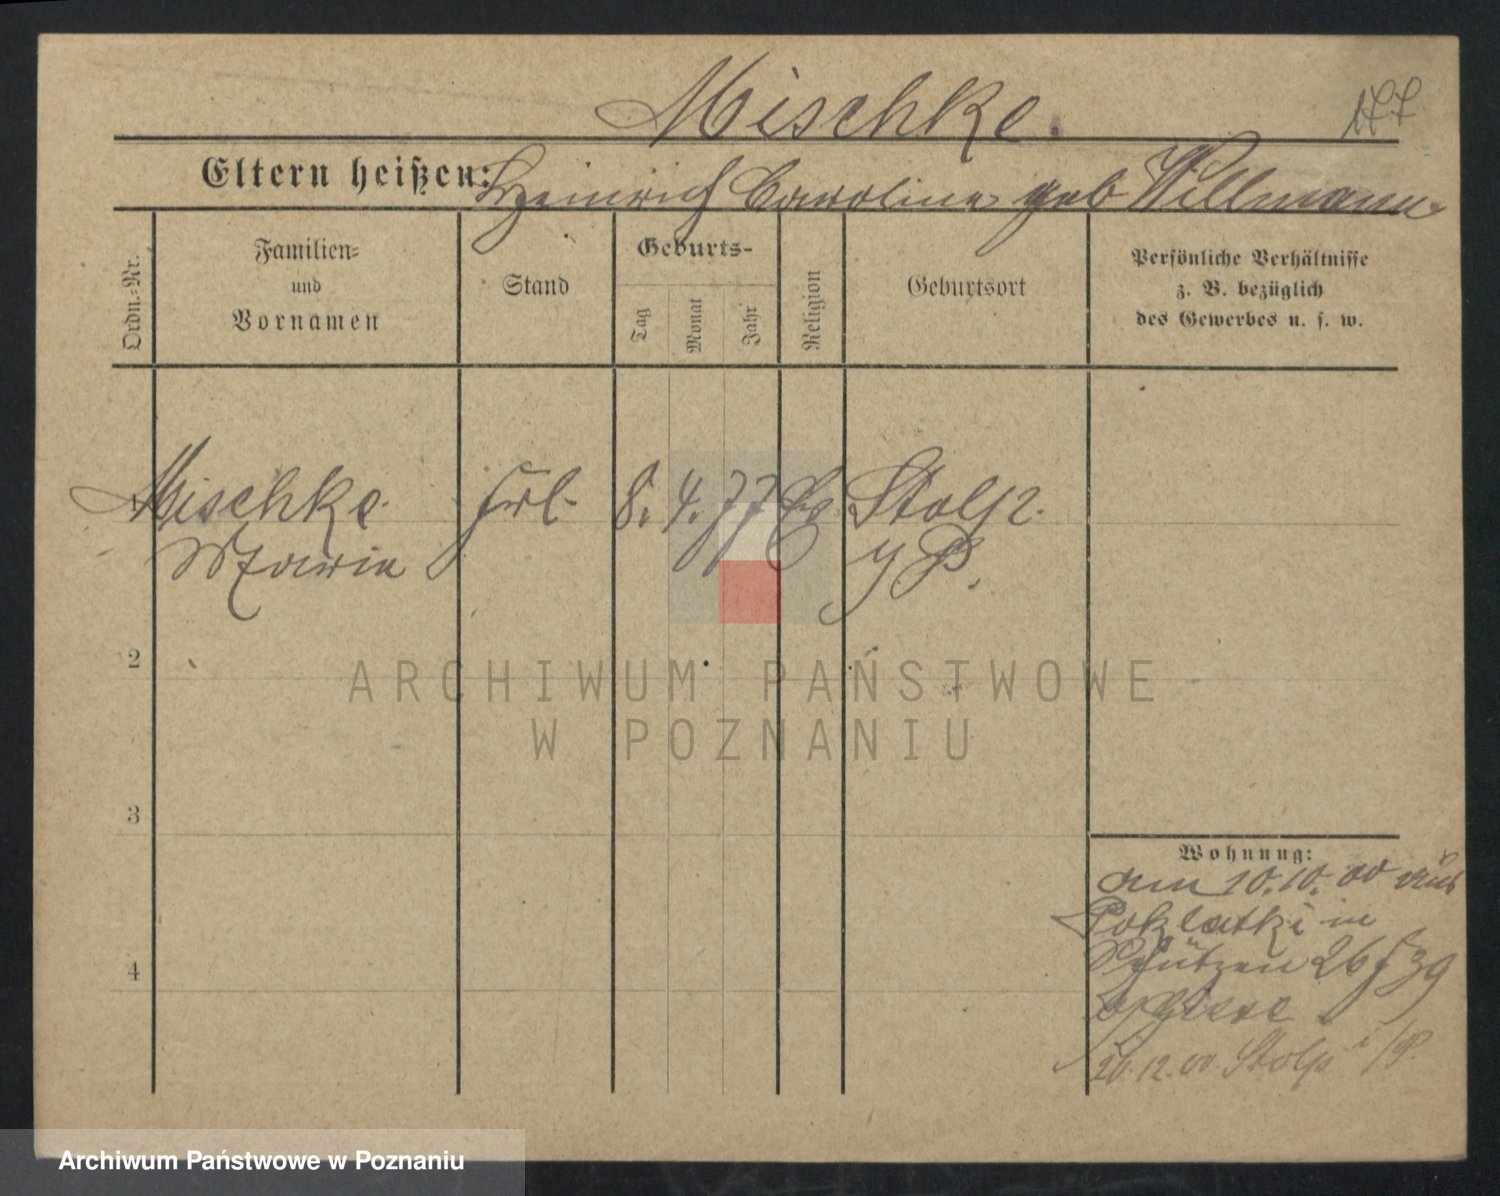 Mischke.
Eltern heißen: Heinrich Caroline geb Willmann
Ordn.-Nr.
Familien-
und
Vornamen
Stand
Geburts-
Tag
Monat
Jahr
Religion
Geburtsort
Persönliche Verhältnisse
z. B. bezüglich
des Gewerbes u. s. w.
1 Mischke Frl. 8. 4. 77 Ev Stolp
Marie i/P.
2
ARCHIWUM PAŃSTWOWE
W POZNANIU
3
Wohnung:
am 10.10.00 aus
Poklatki in
Schützen 26 39
b/
4
20.12.00 Stolp i/P.
Archiwum Państwowe w Poznaniu